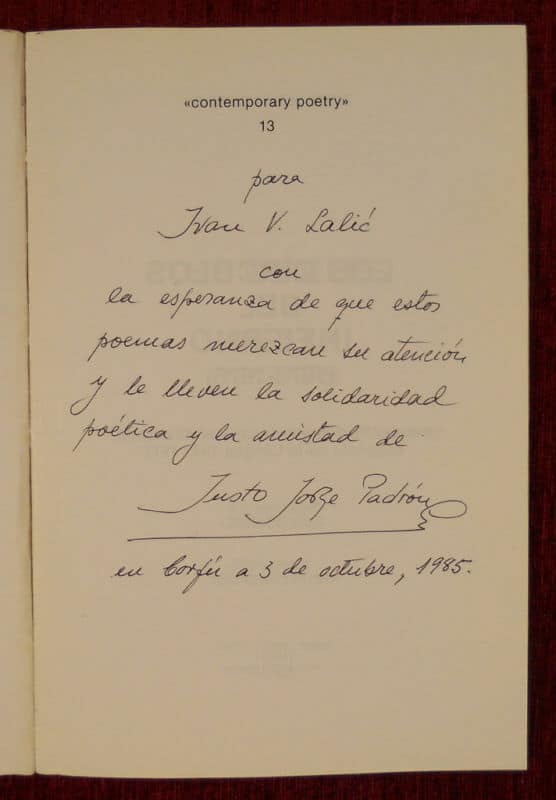 «contemporary poetry»
13
para
Ivan V. Lalić
con
la esperanza de que estos
poemas merezcan su atención
y le lleven la solidaridad
poética y la amistad de
Justo Jorge Padrón
en Corfú a 3 de octubre, 1985.